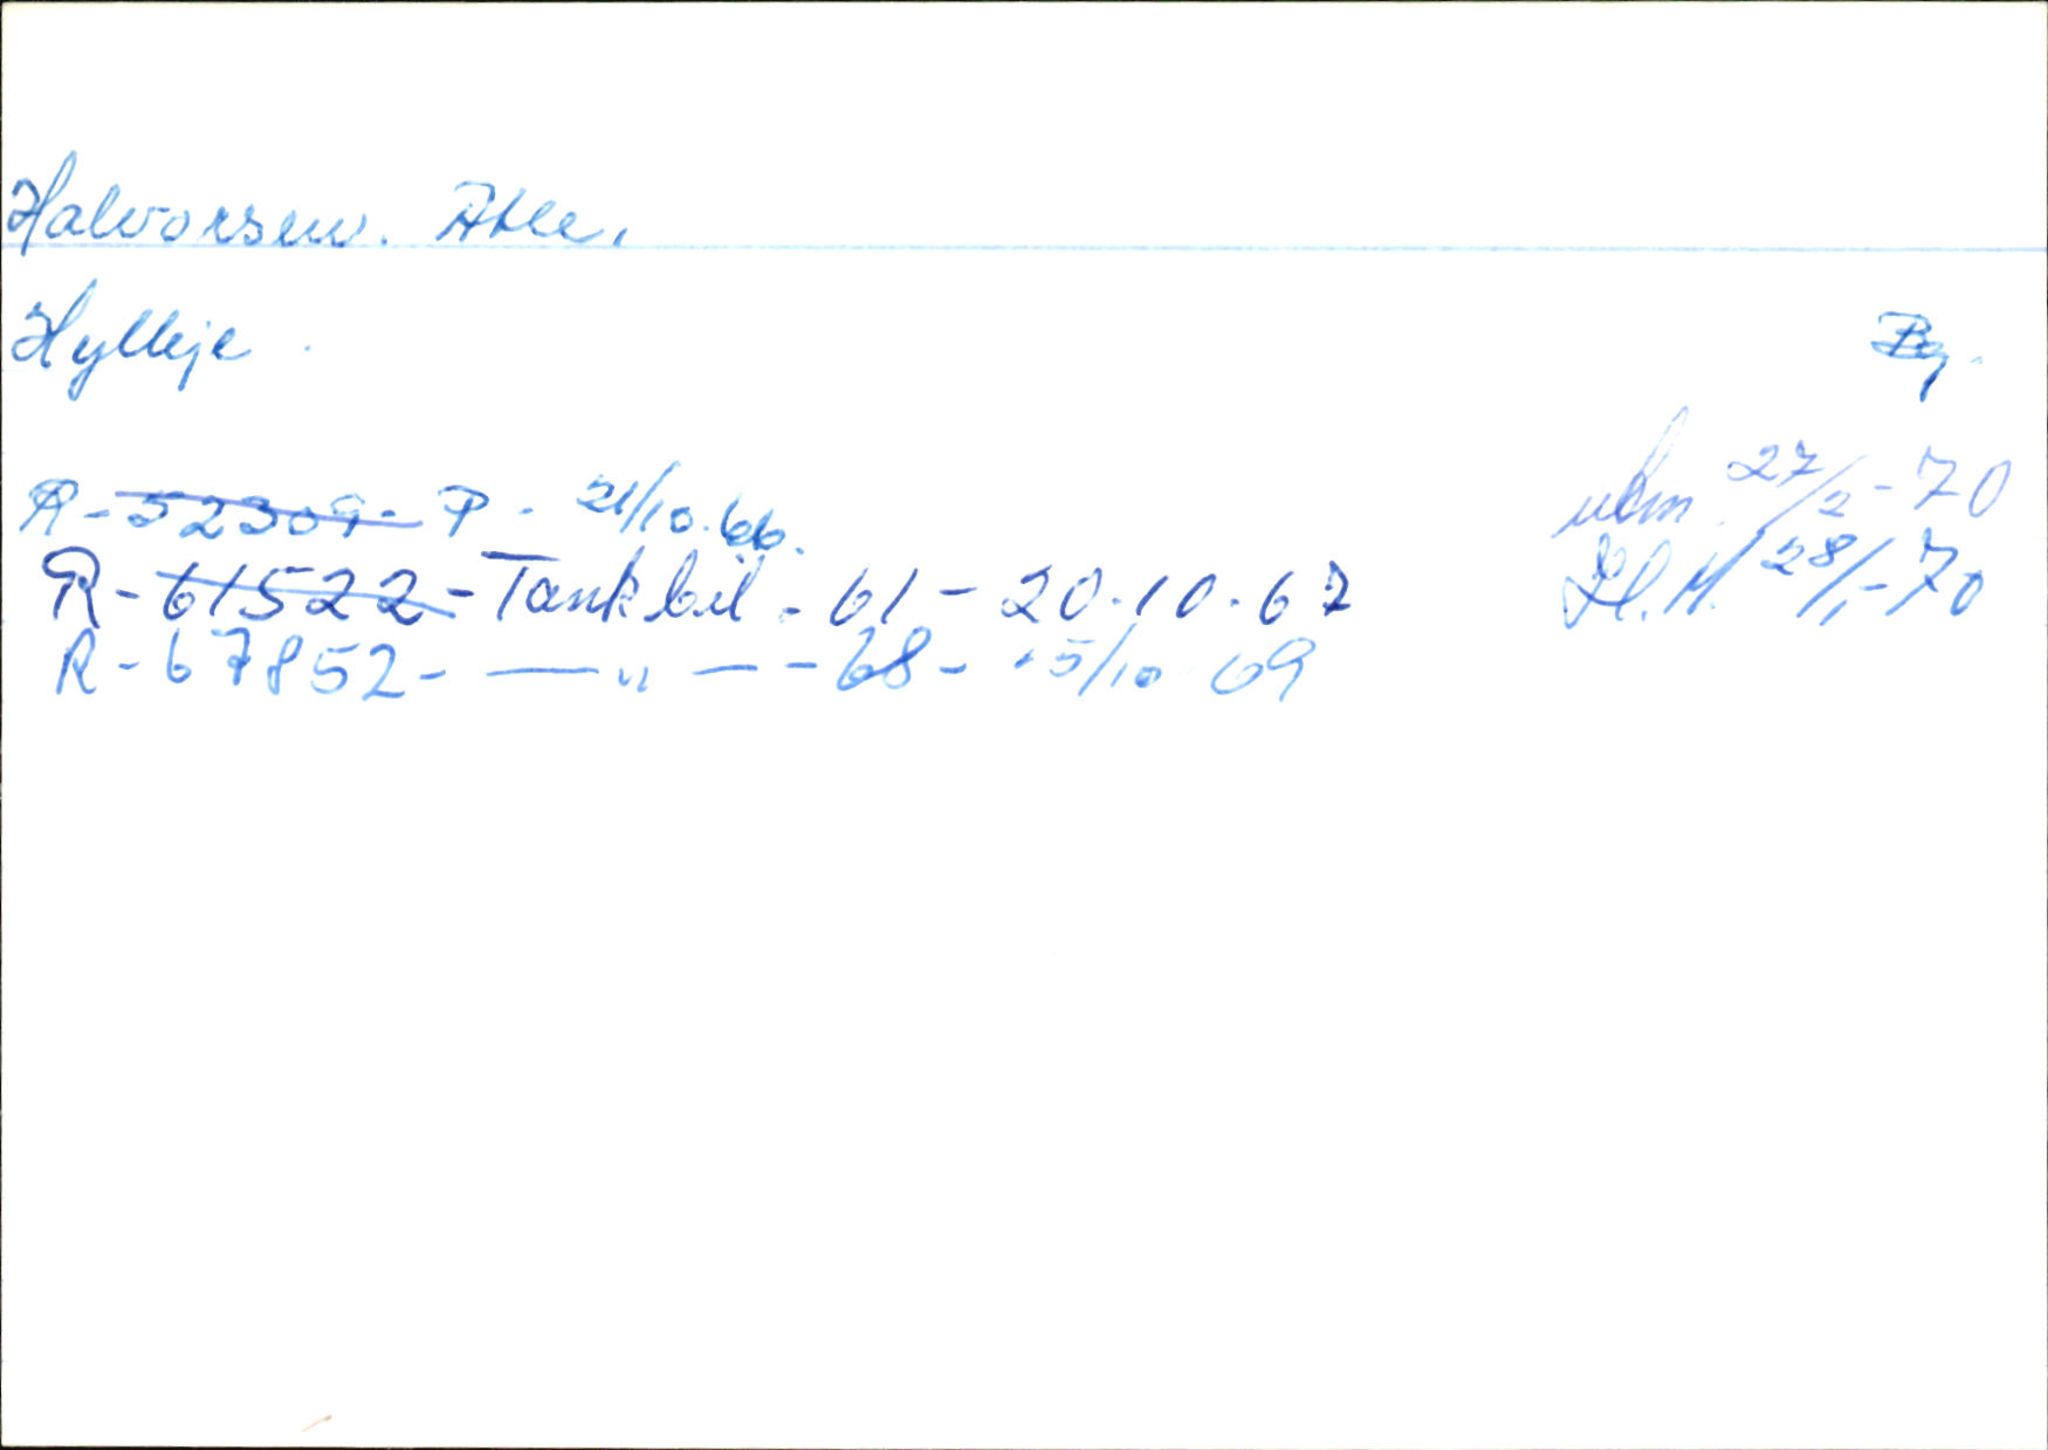 Halvorsen. Atle.
Hylleje
By.
R-52309- P - 21/10.66.
utm. 27/2-70
R-61522-Tankbil - 61 - 20.10.67
H.H. 28/1-70
R-67852- — " — -68- 15/10 69